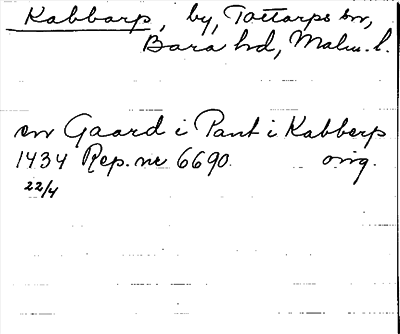 Kabbarp, by, Tottarps sn,
Bara hd, Malm. l.
en Gaard i Pant i Kabberp
1434 Rep. nr 6690. orig.
22/4